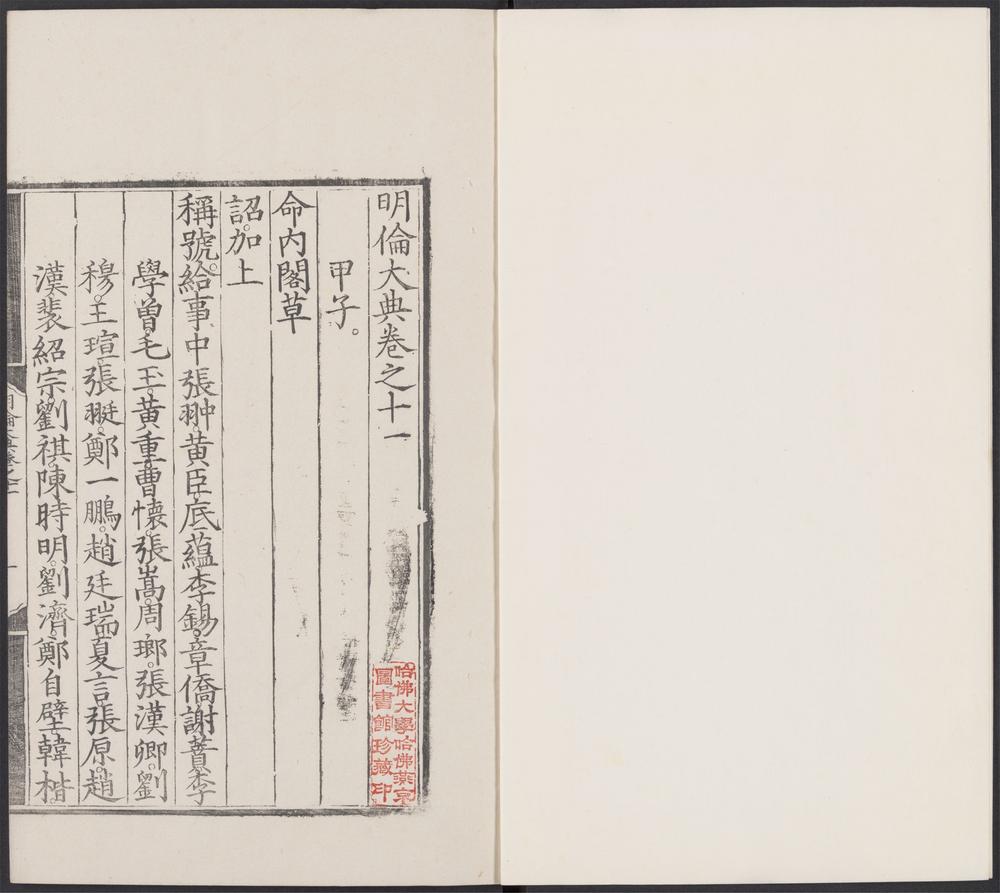 明倫大典卷之十一
甲子。
命內閣草
詔加上
稱號。給事中張翀。黃臣。底蘊。李錫。章僑。謝蕡。李
學曾。毛玉。黃重。曹懷。張嵩。周瑯。張漢卿。劉
穆。王瑄。張䎖。鄭一鵬。趙廷瑞。夏言。張原。趙
漢。裴紹宗。劉祺。陳時明。劉濟。鄭自璧。韓楷。
哈佛大學哈佛燕京
圖書館珍藏印